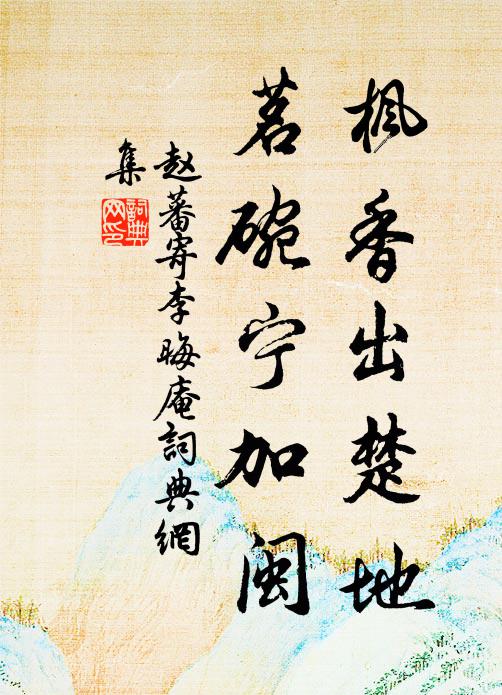 枫香出楚地
茗碗宁加闽
赵蕃寄李晦庵詞典網
集
詞典
网印